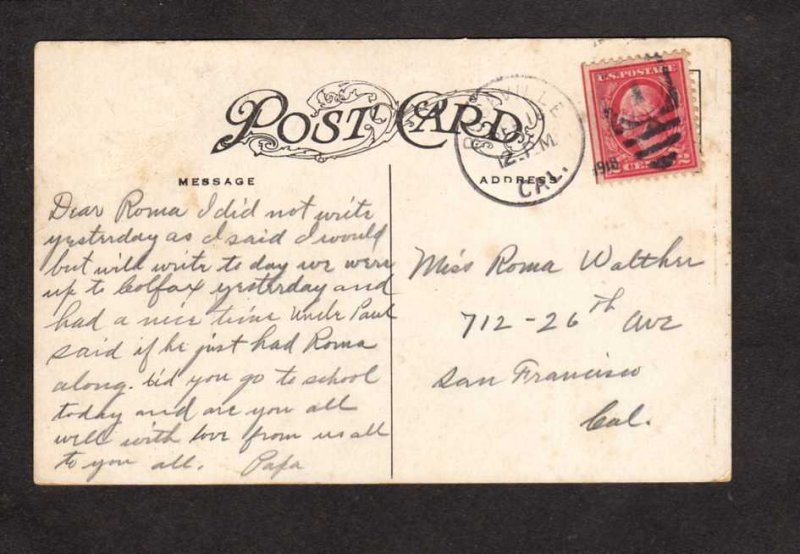 POST CARD
VILLE
12 M
CAL.
1918
U.S. POSTAGE
2
MESSAGE
ADDRESS
Dear Roma I did not write
yesterday as I said I would
but will write to day we were
up to Colfax yesterday and
had a nice time Uncle Paul
said if he just had Roma
along. did you go to school
today and are you all
well with love from us all
to you all. Papa
Miss Roma Walther
712-26th Ave
San Francisco
Cal.